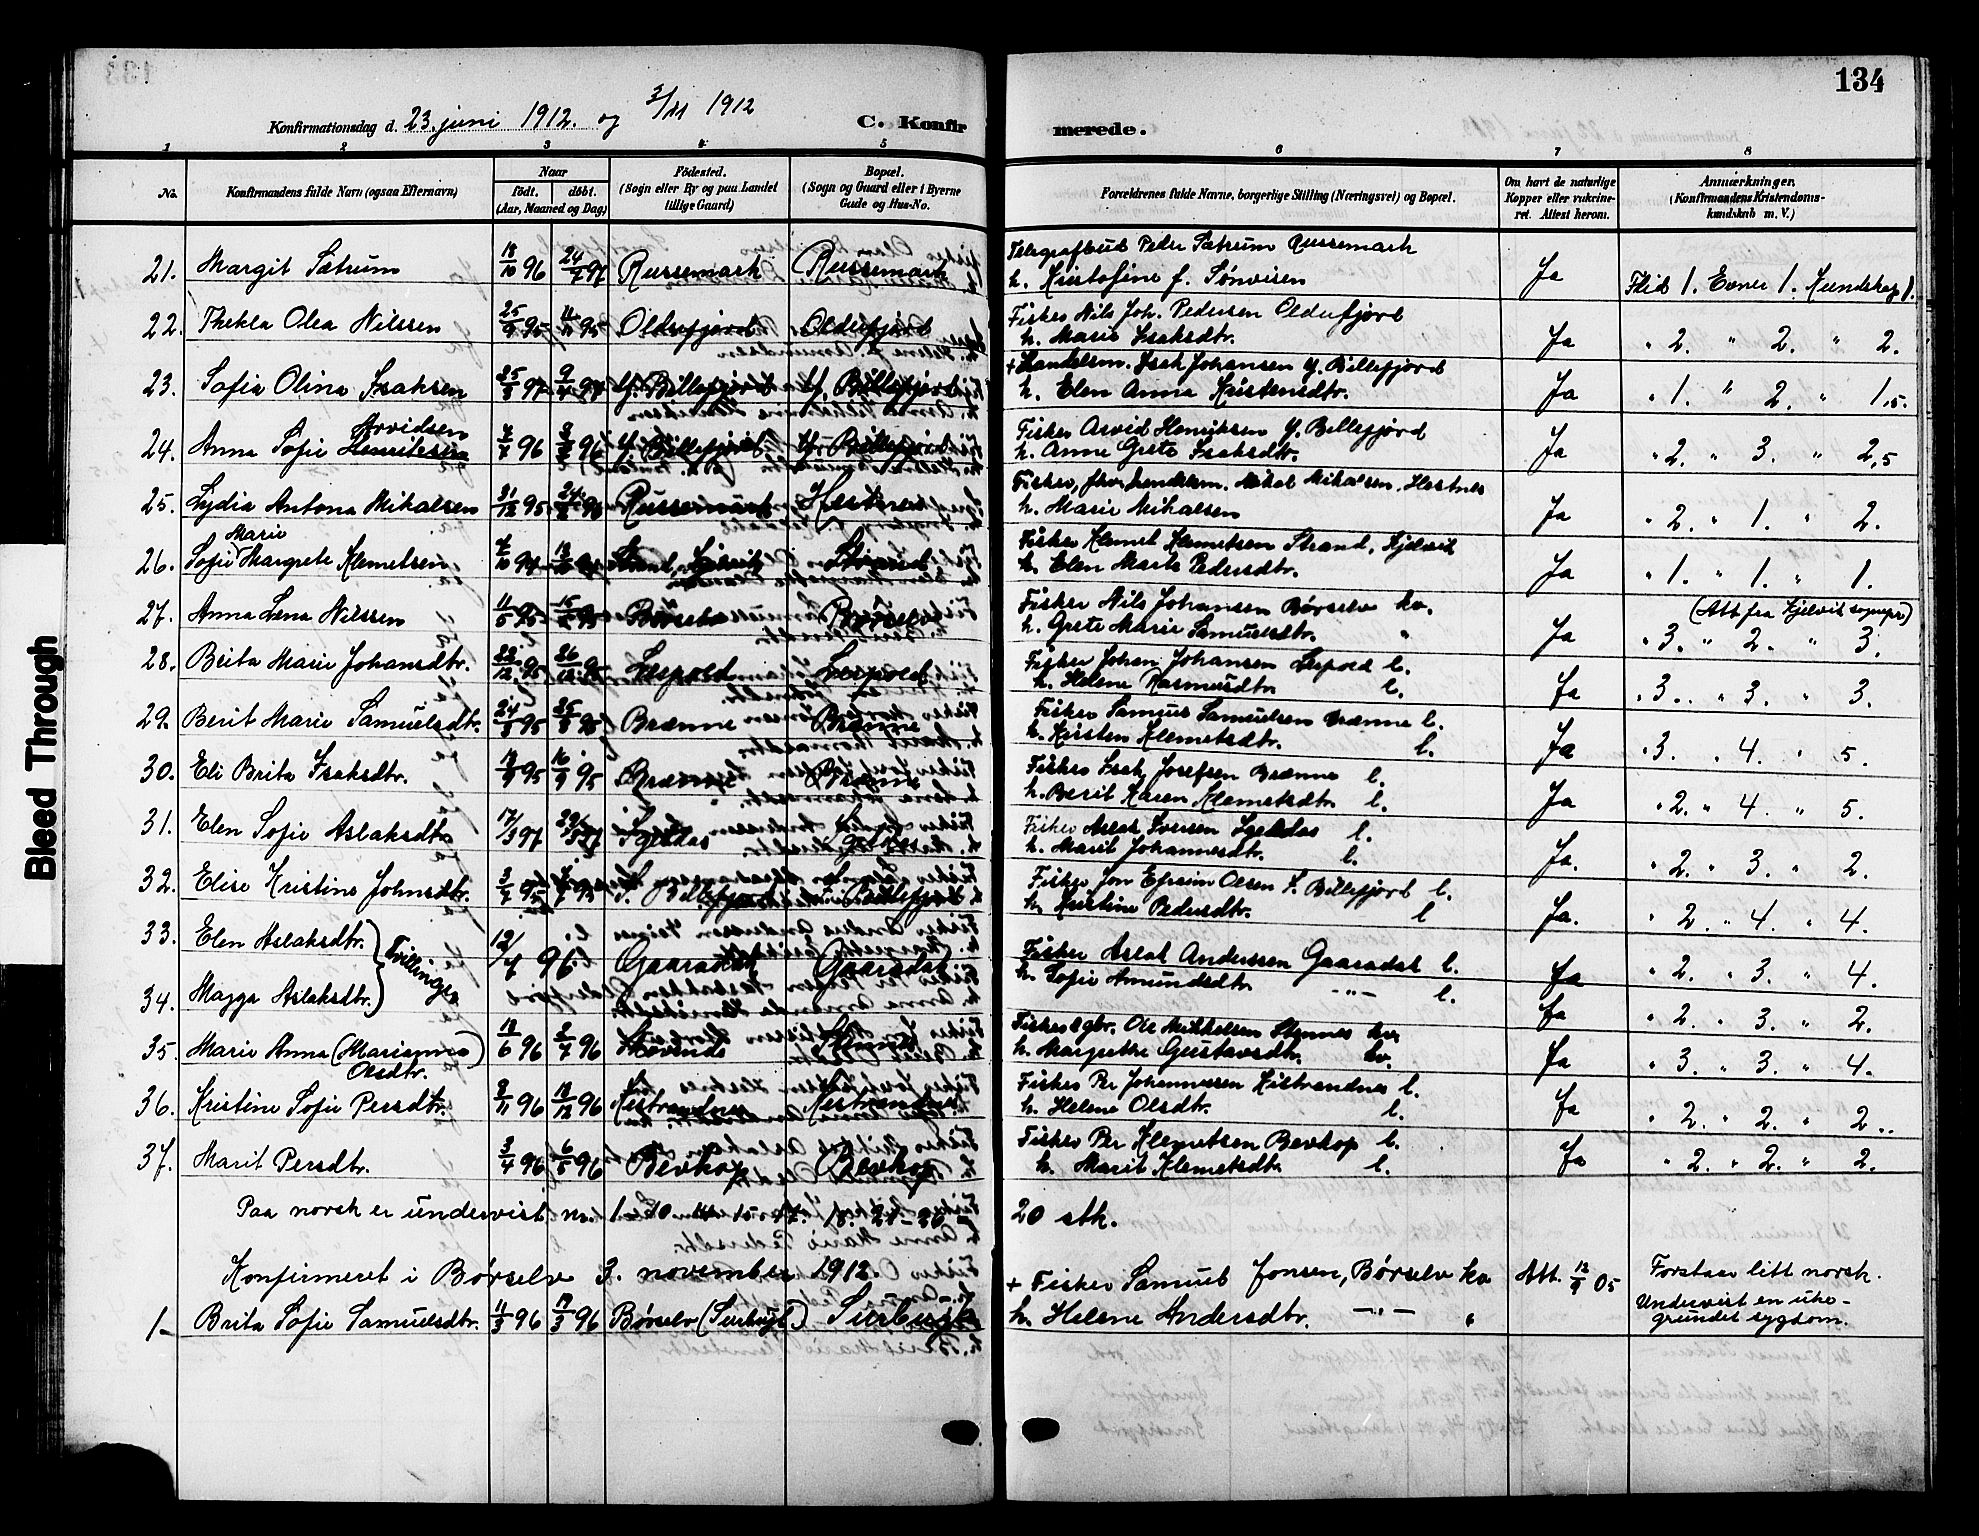 134
Konfirmationsdag d. 23. juni 1912. og 3/11 1912
C. Konfirmerede.
1 2 3 4 5 6 7 8
No. Konfirmandens fulde Navn (ogsaa Efternavn) Naar født. døbt. (Aar, Maaned og Dag) Fødested. (Sogn eller By og paa Landet tillige Gaard) Bopæl. (Sogn og Gaard eller i Byerne Gade og Hus-No. Forældrenes fulde Navne, borgerlige Stilling (Næringsvei) og Bopæl. Om havt de naturlige Kopper eller vakcineret. Attest herom. Anmærkninger. (Konfirmandens Kristendomskundskab m. V.)
21. Margit Sætrum 18/10 96 Russemark Russemark Telegrafbud Peder Sætrum Russemark
h. Kristofine f. Sønvisen Ja Flid 1. Evner 1. Kundskap 1.
22. Thekla Olea Nilssen 25/9 95 Oldefjord Oldefjord Fisker Nils Joh. Pedersen Oldefjord
h. Marie Isaksdtr. Ja " 2. " 2. " 2.
23. Sofie Olina Isaksen Y. Billefjord Y. Billefjord + Handelsm. Isak Johansen Y. Billefjord
h. Elen Anna Kristensdtr. Ja " 1. " 2. " 1,5.
Arvidsen
24. Anna Sofie Henriksen Y. Billefjord Y. Billefjord Fisker Arvid Henriksen Y. Billefjord
h. Anne Grete Isaksdtr. Ja " 2. " 3. " 2,5
25. Lydia Antona Mikalsen 31/12 95 Russemark Hestnes Fisker, Mikal Mikalsen. Hestnes
h. Marie Mikalsen Ja " 2. " 1. " 2.
Marie
26. Sofie Margrete Klemetsen Strand, Kjelvik Strand Fisker Klemet Klemetsen Strand, Kjelvik
h. Elen Marte Pedersdtr. Ja " 1. " 1. " 1.
(Att. fra Kjelvik sognepr)
27. Anna Lena Nilssen 11/5 95 Børselv Børselv Fisker Nils Johansen Børselv kv.
h. Grete Marie Samuelsdtr. " Ja " 3. " 2. " 3.
28. Brita Marie Johansdtr. 22/12 95 26/12 95 Leirpold Leirpold Fisker Johan Johansen Leirpold l.
h. Helene Rasmusdtr. l. Ja " 3. " 3. " 3.
29. Berit Marie Samuelsdtr. Brænne Brænne Fisker Samuel Samuelsen Brænne l.
h. Kirsten Klemetsdtr. l. Ja " 3. " 4. " 5.
30. Eli Brita Isaksdtr. Brænne Brænne Fisker Isak Josefsen Brænne l.
h. Berit Karen Klemetsdtr. l. Ja " 2. " 4. " 5.
31. Elen Sofie Aslaksdtr. 17/3 97 Igeldas Igeldas Fisker Aslak Iversen Igeldas l.
h. Marit Johannesdtr. l. Ja. " 2. " 3. " 2.
32. Elise Kristine Johnsdtr. S. Billefjord S. Billefjord Fisker Jon Efraim Olsen S. Billefjord l.
h. Kristine Pedersdtr. l Ja. " 2. " 4. " 4.
33. Elen Aslaksdtr. } Tvillinger 12/4 96 Gaaradak Gaaradak Fisker Aslak Anderssen Gaaradak l.
h. Sofie Amundsdtr. —"— l. Ja " 2. " 3. " 4.
34. Magga Aslaksdtr. Ja " 2. " 3. " 2.
35. Marie Anna (Marianna) Olsdtr. 18/6 96 2/7 96 Fisker & gbr. Ole Mikkelsen kv
h. Margrethe Gustavsdtr. kv. Ja " 3. " 3. " 4.
36. Kristine Sofie Persdtr. 2/11 96 18/12 96 Kistrandnes Kistrandnes Fisker Per Johannessen Kistrandnes l.
h. Helene Olsdtr. l. Ja " 2. " 2. " 2.
37. Marit Persdtr. 3/4 96 6/5 96 Bevkop Bevkop Fisker Per Klemetsen Bevkop l.
h. Marit Klemetsdtr. l. Ja " 2. " 2. " 2.
Paa norsk er undervist nr. 1–10 14 15 17. 18. 21–26 = 20 stk.
Konfirmeret i Børselv 3. november 1912.
1– Brita Sofie Samuelsdtr. 11/3 96 19/3 96 Børselv + Fisker Samuel Jonsen, Børselv kv
h. Helene Andersdtr. —"— " Att. 12/9 05 Forstaar litt norsk.
Undervist en uke –
grundet sygdom.
Bleed Through